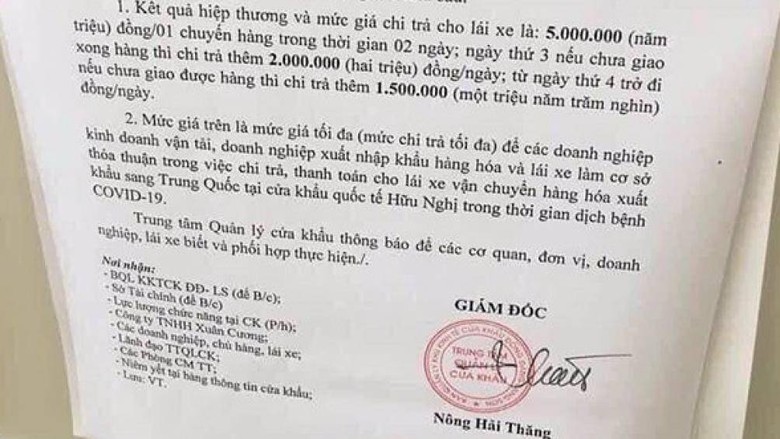 1. Kết quả hiệp thương và mức giá chi trả cho lái xe là: 5.000.000 (năm
triệu) đồng/01 chuyến hàng trong thời gian 02 ngày; ngày thứ 3 nếu chưa giao
xong hàng thì chi trả thêm 2.000.000 (hai triệu) đồng/ngày; từ ngày thứ 4 trở đi
nếu chưa giao được hàng thì chi trả thêm 1.500.000 (một triệu năm trăm nghìn)
đồng/ngày.
2. Mức giá trên là mức giá tối đa (mức chi trả tối đa) để các doanh nghiệp
kinh doanh vận tải, doanh nghiệp xuất nhập khẩu hàng hóa và lái xe làm cơ sở
thỏa thuận trong việc chi trả, thanh toán cho lái xe vận chuyển hàng hóa xuất
khẩu sang Trung Quốc tại cửa khẩu quốc tế Hữu Nghị trong thời gian dịch bệnh
COVID-19.
Trung tâm Quản lý cửa khẩu thông báo để các cơ quan, đơn vị, doanh
nghiệp, lái xe biết và phối hợp thực hiện./.
Nơi nhận:
- BQL KKTCK ĐĐ- LS (để B/c);
- Sở Tài chính (để B/c)
- Lực lượng chức năng tại CK (P/h);
- Công ty TNHH Xuân Cương;
- Các doanh nghiệp, chủ hàng, lái xe;
- Lãnh đạo TTQLCK;
- Các Phòng CM TT;
- Niêm yết tại bảng thông tin cửa khẩu;
- Lưu: VT.
GIÁM ĐỐC
TRUNG TÂM
QUẢN
CỬA KHẨU
Nông Hải Thăng